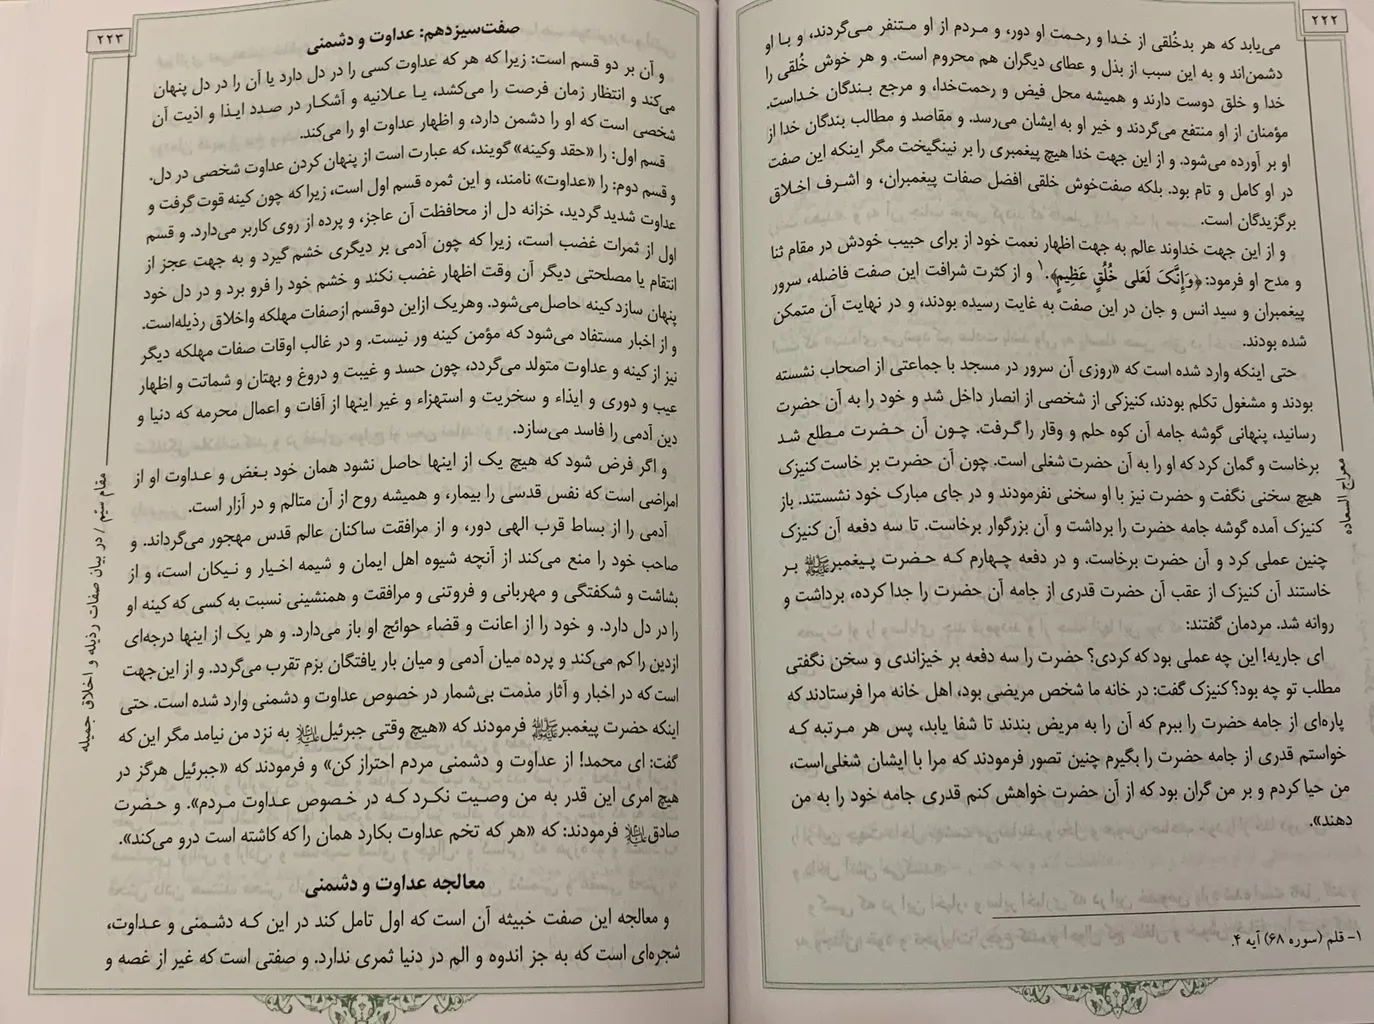 ۲۲۲
می‌یابد که هر بدخُلقی از خدا و رحمت او دور، و مردم از او متنفر می‌گردند، و با او
دشمن‌اند و به این سبب از بذل و عطای دیگران هم محروم است. و هر خوش خُلقی را
خدا و خلق دوست دارند و همیشه محل فیض و رحمت‌خدا، و مرجع بندگان خداست.
مؤمنان از او منتفع می‌گردند و خیر او به ایشان می‌رسد. و مقاصد و مطالب بندگان خدا از
او بر آورده می‌شود. و از این جهت خدا هیچ پیغمبری را بر نینگیخت مگر اینکه این صفت
در او کامل و تام بود. بلکه صفت‌خوش خلقی افضل صفات پیغمبران، و اشرف اخلاق
برگزیدگان است.
و از این جهت خداوند عالم به جهت اظهار نعمت خود از برای حبیب خودش در مقام ثنا
و مدح او فرمود: ﴿وَإِنَّکَ لَعَلی خُلُقٍ عَظِیمٍ﴾.۱ و از کثرت شرافت این صفت فاضله، سرور
پیغمبران و سید انس و جان در این صفت به غایت رسیده بودند، و در نهایت آن متمکن
شده بودند.
حتی اینکه وارد شده است که «روزی آن سرور در مسجد با جماعتی از اصحاب نشسته
بودند و مشغول تکلم بودند، کنیزکی از شخصی از انصار داخل شد و خود را به آن حضرت
رسانید، پنهانی گوشه جامه آن کوه حلم و وقار را گرفت. چون آن حضرت مطلع شد
برخاست و گمان کرد که او را به آن حضرت شغلی است. چون آن حضرت بر خاست کنیزک
هیچ سخنی نگفت و حضرت نیز با او سخنی نفرمودند و در جای مبارک خود نشستند. باز
کنیزک آمده گوشه جامه حضرت را برداشت و آن بزرگوار برخاست. تا سه دفعه آن کنیزک
چنین عملی کرد و آن حضرت برخاست. و در دفعه چهارم که حضرت پیغمبرﷺ بر
خاستند آن کنیزک از عقب آن حضرت قدری از جامه آن حضرت را جدا کرده، برداشت و
روانه شد. مردمان گفتند:
ای جاریه! این چه عملی بود که کردی؟ حضرت را سه دفعه بر خیزاندی و سخن نگفتی
مطلب تو چه بود؟ کنیزک گفت: در خانه ما شخص مریضی بود، اهل خانه مرا فرستادند که
پاره‌ای از جامه حضرت را ببرم که آن را به مریض بندند تا شفا یابد، پس هر مرتبه که
خواستم قدری از جامه حضرت را بگیرم چنین تصور فرمودند که مرا با ایشان شغلی‌است،
من حیا کردم و بر من گران بود که از آن حضرت خواهش کنم قدری جامه خود را به من
دهند».
۱- قلم (سوره ۶۸) آیه ۴.
معراج السعاده
۲۲۳
صفت‌سیزدهم: عداوت و دشمنی
و آن بر دو قسم است: زیرا که هر که عداوت کسی را در دل دارد یا آن را در دل پنهان
می‌کند و انتظار زمان فرصت را می‌کشد، یا علانیه و آشکار در صدد ایذا و اذیت آن
شخصی است که او را دشمن دارد، و اظهار عداوت او را می‌کند.
قسم اول: را «حقد وکینه» گویند، که عبارت است از پنهان کردن عداوت شخصی در دل.
و قسم دوم: را «عداوت» نامند، و این ثمره قسم اول است، زیرا که چون کینه قوت گرفت و
عداوت شدید گردید، خزانه دل از محافظت آن عاجز، و پرده از روی کاربر می‌دارد. و قسم
اول از ثمرات غضب است، زیرا که چون آدمی بر دیگری خشم گیرد و به جهت عجز از
انتقام یا مصلحتی دیگر آن وقت اظهار غضب نکند و خشم خود را فرو برد و در دل خود
پنهان سازد کینه حاصل‌می‌شود. وهریک ازاین دوقسم ازصفات مهلکه واخلاق رذیله‌است.
و از اخبار مستفاد می‌شود که مؤمن کینه ور نیست. و در غالب اوقات صفات مهلکه دیگر
نیز از کینه و عداوت متولد می‌گردد، چون حسد و غیبت و دروغ و بهتان و شماتت و اظهار
عیب و دوری و ایذاء و سخریت و استهزاء و غیر اینها از آفات و اعمال محرمه که دنیا و
دین آدمی را فاسد می‌سازد.
و اگر فرض شود که هیچ یک از اینها حاصل نشود همان خود بغض و عداوت او از
امراضی است که نفس قدسی را بیمار، و همیشه روح از آن متالم و در آزار است.
آدمی را از بساط قرب الهی دور، و از مرافقت ساکنان عالم قدس مهجور می‌گرداند. و
صاحب خود را منع می‌کند از آنچه شیوه اهل ایمان و شیمه اخیار و نیکان است، و از
بشاشت و شکفتگی و مهربانی و فروتنی و مرافقت و همنشینی نسبت به کسی که کینه او
را در دل دارد. و خود را از اعانت و قضاء حوائج او باز می‌دارد. و هر یک از اینها درجه‌ای
ازدین را کم می‌کند و پرده میان آدمی و میان بار یافتگان بزم تقرب می‌گردد. و از این‌جهت
است که در اخبار و آثار مذمت بی‌شمار در خصوص عداوت و دشمنی وارد شده است. حتی
اینکه حضرت پیغمبرﷺ فرمودند که «هیچ وقتی جبرئیل علیه‌السلام به نزد من نیامد مگر این که
گفت: ای محمد! از عداوت و دشمنی مردم احتراز کن» و فرمودند که «جبرئیل هرگز در
هیچ امری این قدر به من وصیت نکرد که در خصوص عداوت مردم». و حضرت
صادق علیه‌السلام فرمودند: که «هر که تخم عداوت بکارد همان را که کاشته است درو می‌کند».
معالجه عداوت و دشمنی
و معالجه این صفت خبیثه آن است که اول تامل کند در این که دشمنی و عداوت،
شجره‌ای است که به جز اندوه و الم در دنیا ثمری ندارد. و صفتی است که غیر از غصه و
مقام سیّم / در بیان صفات رذیله و اخلاق جمیله